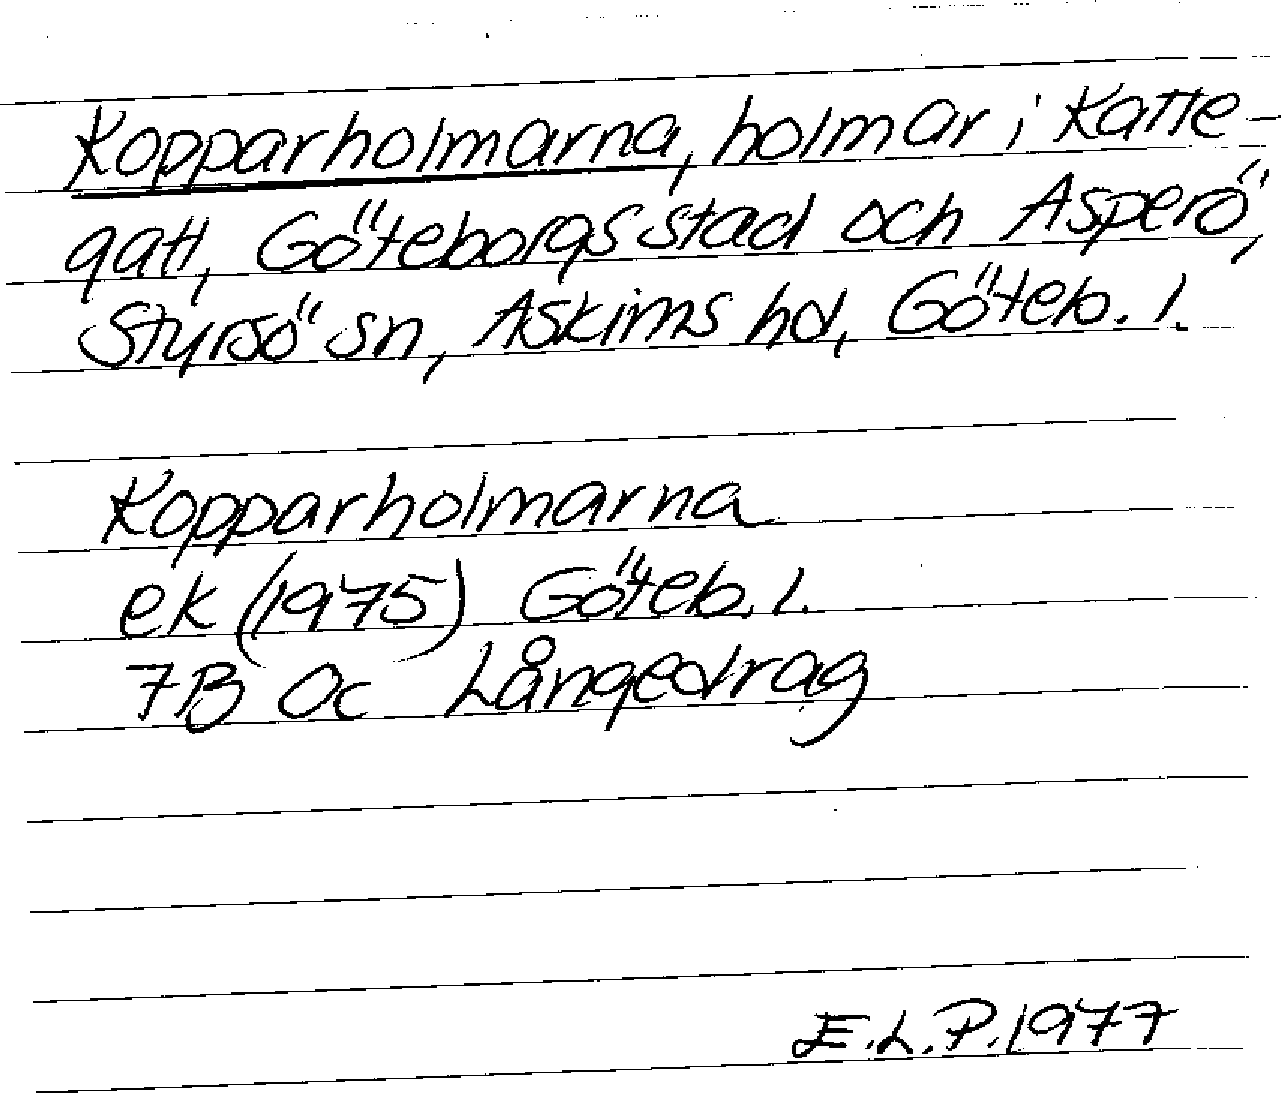 Kopparholmarna, holmar i Katte-
gatt, Göteborgs stad och Asperö,
Styrsö sn, Askims hd, Göteb. l.
Kopparholmarna
ek (1975) Göteb. l.
7B 0c Långedrag
E.L.P. 1977